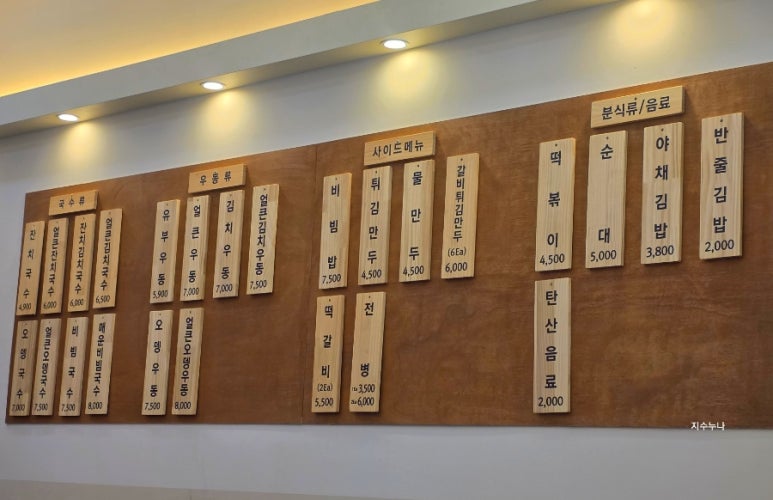 국수류
잔치국수 4,900
얼큰잔치국수 6,000
잔치김치국수 6,000
얼큰김치국수 6,500
오뎅국수 7,000
얼큰오뎅국수 7,500
비빔국수 7,500
매운비빔국수 8,000
우동류
유부우동 5,900
얼큰우동 7,000
김치우동 7,000
얼큰김치우동 7,500
오뎅우동 7,500
얼큰오뎅우동 8,000
사이드메뉴
비빔밥 7,500
튀김만두 4,500
물만두 4,500
갈비튀김만두 (6Ea) 6,000
떡갈비 (2Ea) 5,500
전병
1ea 3,500
2ea 6,000
분식류/음료
떡볶이 4,500
순대 5,000
야채김밥 3,800
반줄김밥 2,000
탄산음료 2,000
지수누나